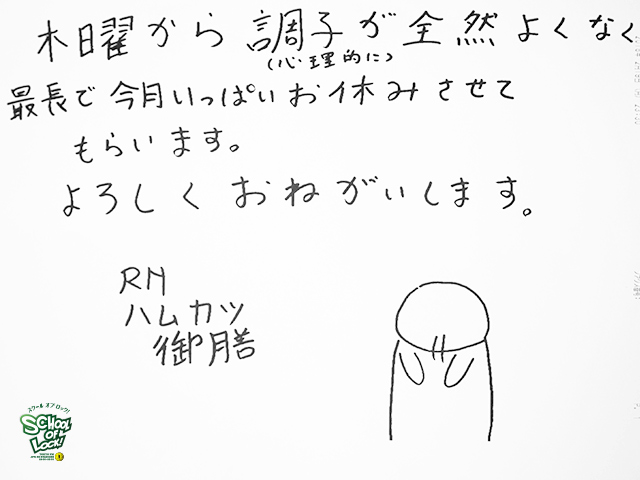 木曜から調子が全然よくなく
(心理的に)
最長で今月いっぱいお休みさせて
もらいます。
よろしくおねがいします。
RN
ハムカツ
御膳
スクール オブ ロック!
SCHOOL
OF
LOCK!